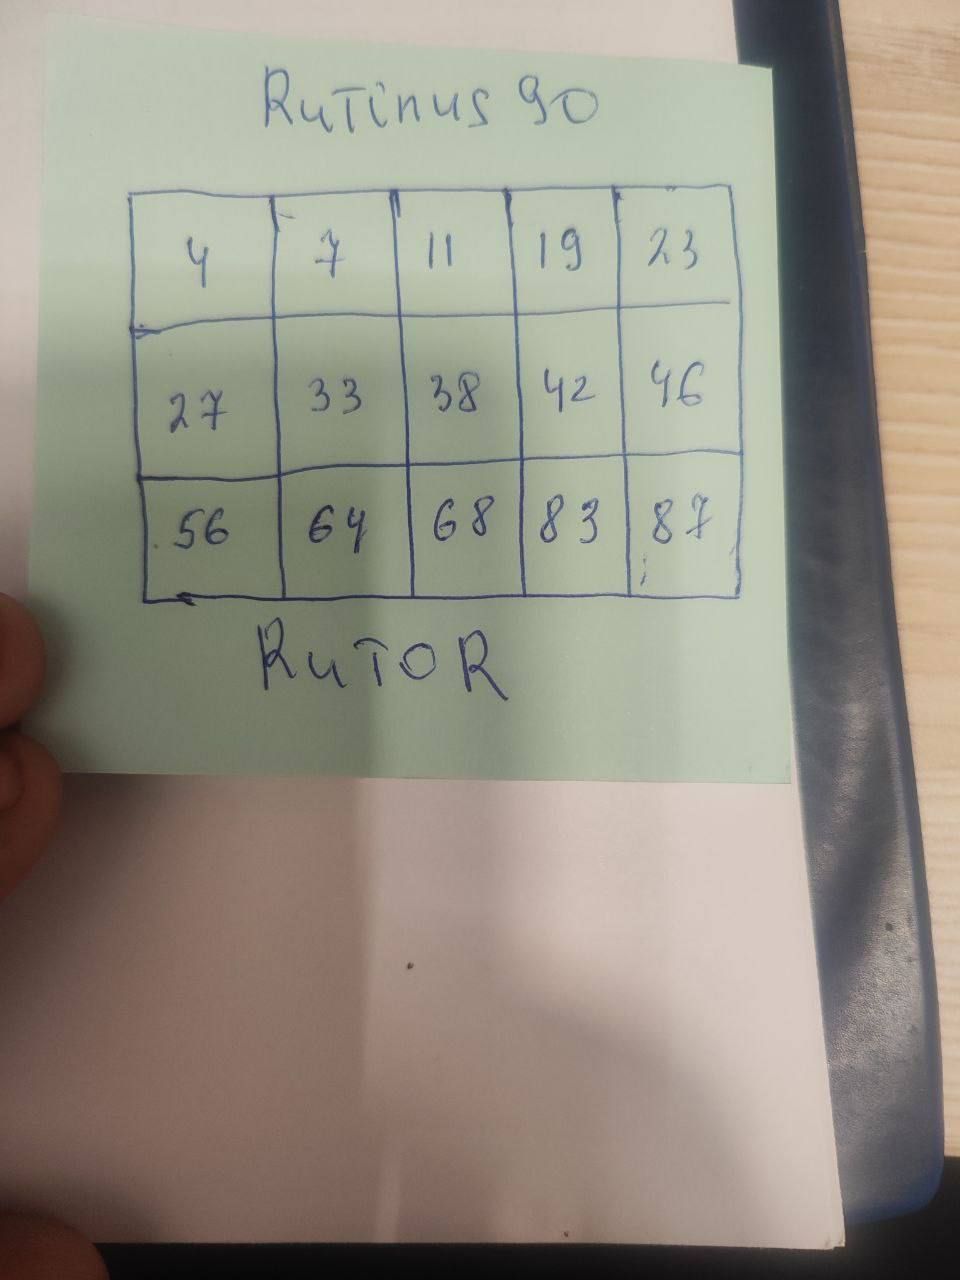 Rutinus 90
4 7 11 19 23
27 33 38 42 46
56 64 68 83 87
RuTOR